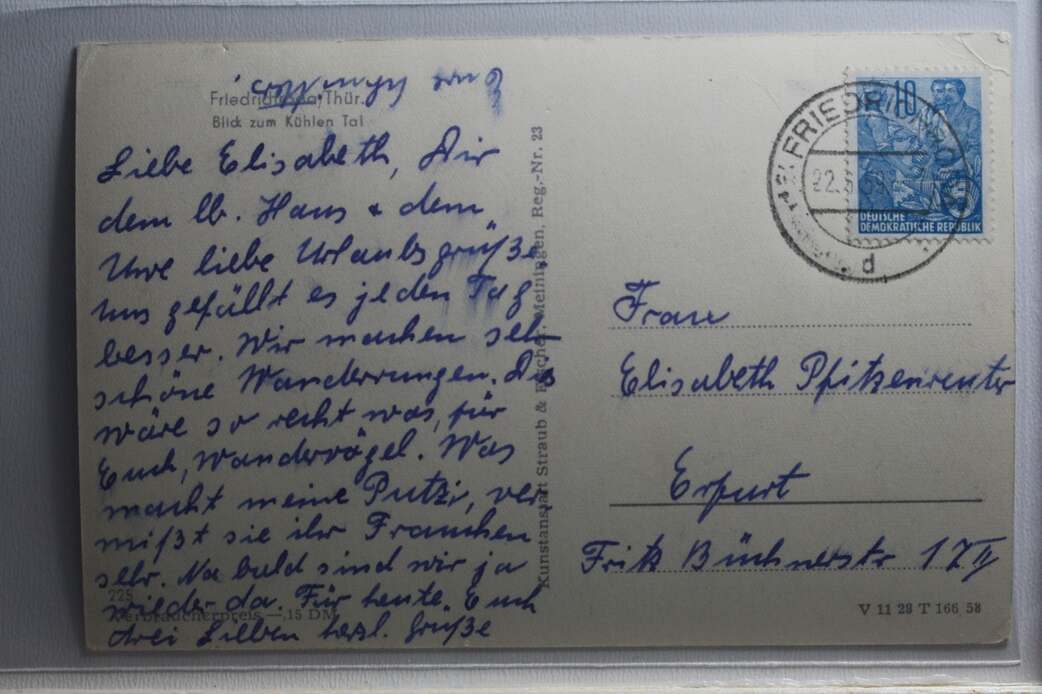 Friedrichroda/Thür.
Blick zum Kühlen Tal
Liebe Elisabeth, Dir
dem lb. Hans & dem
Uwe liebe Urlaubsgrüße.
Uns gefällt es jeden Tag
besser. Wir machen sehr
schöne Wanderrungen. Das
wäre so recht was, für
Euch, Wandervögel. Was
macht meine Putzi, ver
mißt sie ihr Frauchen
sehr. Na bald sind wir ja
wieder da. Für heute, Euch
drei Lieben herzl. Grüße
225
Verbraucherpreis —,15 DM
Kunstanstalt Straub & Fischer, Meiningen, Reg.-Nr. 23
10
DEUTSCHE
DEMOKRATISCHE REPUBLIK
FRIEDRICHRODA
d
Frau
Elisabeth Pfitzenreuter
Erfurt
Fritz Büchnerstr 17 II
V 11 28 T 166 58